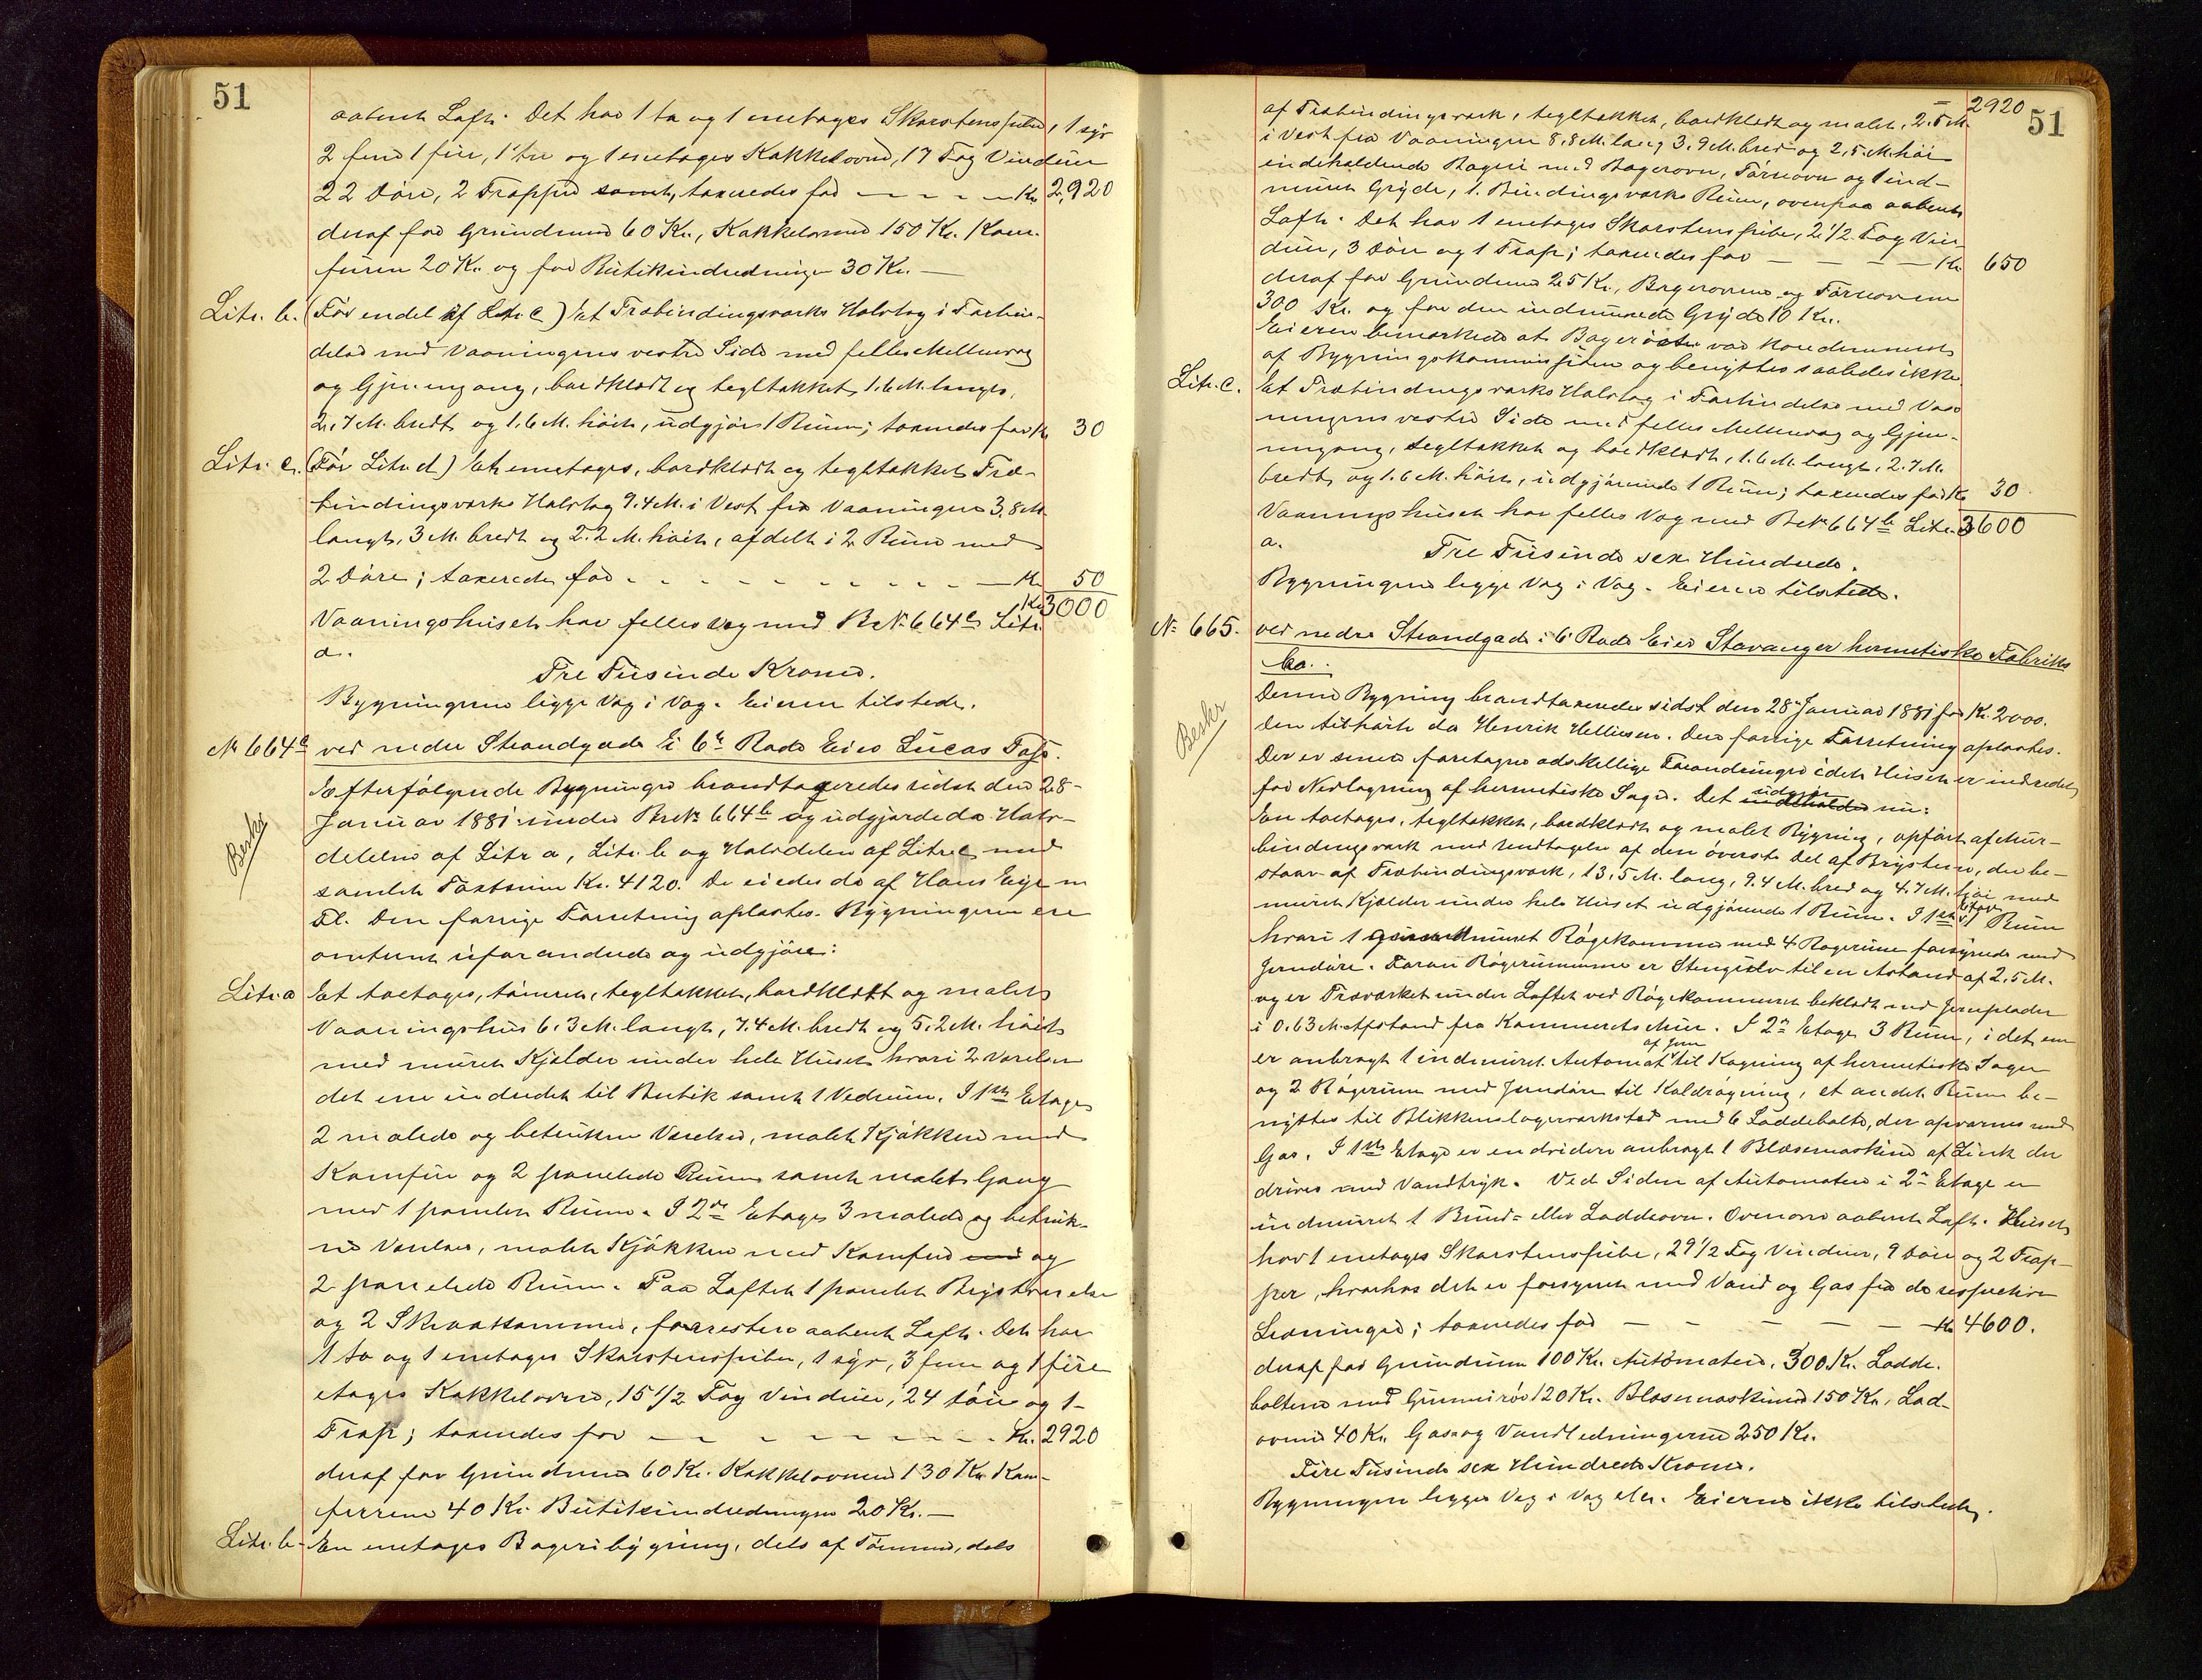 51
aabent Loft. Det har 1 to og 1 enetages Skorstenspibe, 1 syv
2 fem 1 fire, 1 tre og 1 enetages Kakkelovne, 17 Fag Vinduer
22 Døre, 2 Trapper samt, taxeredes for — — — — Kr. 2,920
deraf for Grundmur 60 Kr., Kakkelovnene 150 Kr. Kom-
fúren 20 Kr. og for Butikindredningen 30 Kr. —
Litr. b. (Før endel af Litr. C) Et Træbindingsværks Halvtag i Forbin-
delse med Vaaningens vestre Side med felles Mellemvæg
og Gjennemgang, bordklædt og tegltækket, 1.6 M. langt,
2.7 M. bredt og 1.6 M. høit, udgjør 1 Rum; taxeredes for Kr. 30
Litr. c. (Før Litr. d) Et enetages, bordklædt og tegltækket Træ-
bindingsværks Halvtag 9.4 M. i Vest fra Vaaningen 3.8 M.
langt, 3 M. bredt og 2.2 M. høit, afdelt i 2 Rum med
2 Døre; taxeredes for - - - - - - - - - Kr. 50
Kr. 3000
Vaaningshuset har felles Væg med B. № 664 c Litr.
a.
Tre Tusinde Kroner.
Bygningerne ligge Væg i Væg. Eieren tilstede.
№ 664 c ved nedre Strandgade i 6te Rode Eier Lucas
Besker
Efterfølgende Bygninger brandtaxeredes sidst den 28-
Januar 1881 under Br. № 664 b og udgjorde da Halv-
delene af Litr a, Litr. b og Halvdelen af Litr. c med
samlet Taxtsum Kr. 4120. De eiedes da af Hans
Fl. Den forrige Forretning aflæstes. Bygningerne ere
omtrent uforandrede og udgjøre:
Litr. a Et toetages, tømret, tegltækket, bordklædt og malet
Vaaningshus 6.3 M. langt, 7.4 M. bredt og 5.2 M. høit
med muret Kjælder under hele Huset, hvori 2 Værelser
det ene indredet til Butik samt 1 Vedrum. I 1ste Etage
2 malede og betrukne Værelser, malet Kjøkken med
Komfur og 2 panelede Rum samt malet Gang
med 1 panelet Rum. I 2den Etage 3 malede og betruk-
ne Værelser, malet Kjøkken med Komfur og
2 panelede Rum. Paa Loftet 1 panelet Brystværelse
og 2 Skraakammer, forresten aabent Loft. Det har
1 to og 1 enetages Skorstenspibe, 1 syv, 3 fem og 1 fire
etages Kakkelovne, 15 1/2 Fag Vinduer, 24 Døre og 1
Trap; taxeredes for — — — — — — Kr. 2920
deraf for Grundmur 60 Kr. Kakkelovnene 130 Kr. Kom-
fúrene 40 Kr. Butikindredningen 20 Kr. —
Litr. b. En enetages Bageribygning, dels af Tømmer, dels
51
2920
af Træbindingsværk, tegltækket, bordklædt og malet, 2.5 M.
i Vest fra Vaaningen 8.8 M. lang, 3.9 M. bred og 2,5 M. høi
indeholdende Bageri med Bagerovn, Tørreovn og 1 ind-
muret Gryde, 1 Bindingsværks Rum, ovenpaa aabent
Loft. Det har 1 enetages Skorstenspibe, 2 1/2 Fag Vin-
duer, 3 Døre og 1 Trap; taxeredes for — — — — Kr. 650
deraf for Grundmur 25 Kr., Bagerovnen og Tørreovnen
300 Kr. og for den indmurede Gryde 10 Kr.
Eieren bemærkede at Bagerovnen var kondemneret
af Bygningskommissionen og benyttes saaledes ikke.
Litr. C. Et Træbindingsværks Halvtag i Forbindelse med Vaa-
ningens vestre Side med felles Mellemvæg og Gjen-
nemgang, tegltækket og bordklædt, 1.6 M. langt, 2.7 M.
bredt og 1.6 M. høit, udgjørende 1 Rum; taxeredes for Kr. 30
Vaaningshuset har felles Væg med B. № 664 b Litr. 3600
a.
Tre Tusinde sex Hundrede.
Bygningerne ligge Væg i Væg. Eieren tilstede.
№ 665. ved nedre Strandgade i 6 Rode Eier Stavanger hermetiske Fabriks
Co.
Besker
Denne Bygning brandtaxeredes sidst den 28 Januar 1881 for Kr. 2000.
Den tilhørte da Henrik Helliesen. Den forrige Forretning aflæstes.
Der er senere foretagne adskillige Forandringer idet Huset er indredet
for Nedlægning af hermetiske Sager. Det udgjør nu:
En toetages, tegltækket, bordklædt og malet Bygning, opført af Mur-
bindingsværk med Undtagelse af den øverste Del af Brysterne, der be-
staar af Træbindingsværk, 13.5 M. lang, 9.4 M. bred og 4.7 M. høi med
muret Kjælder under hele Huset udgjørende 1 Rum. I 1ste Etage 1 Rum
hvori 1 muret Røgekammer med 4 Røgerum forsynede med
Jerndøre. Foran Røgerummene er Stengulv til en Afstand af 2.5 M.
og er Træværket under Loftet ved Røgekammeret beklædt med Jernplader
i 0.63 M. Afstand fra Kammerets Mur. I 2den Etage 3 Rum, i det ene
er anbragt 1 indmuret Automat af Jern til Kogning af hermetiske Sager
og 2 Røgerum med Jerndøre til Koldrøgning, et andet Rum be-
nyttes til Blikkenslagerværksted med 6 Loddebolte, der opvarmes med
Gas. I 1ste Etage er endvidere anbragt 1 Blæsemaskine af Zink der
drives med Vandtryk. Ved Siden af Automaten i 2den Etage er
indmuret 1 Bund- eller Loddeovn. Ovenover aabent Loft. Huset
har 1 enetages Skorstenspibe, 29 1/2 Fag Vinduer, 9 Døre og 2 Trap-
per, hvorhos det er forsynet med Vand og Gas fra de respektive
Ledninger; taxeredes for — — — — — Kr. 4600.
deraf for Grundmur 100 Kr. Automaten. 300 Kr. Lodde-
boltene med Gummirør 120 Kr. Blæsemaskinen 150 Kr. Lod-
ovnen 40 Kr. Gas- og Vandledningerne 250 Kr.
Fire Tusinde sex Hundrede Kroner.
Bygningen ligger Væg i Væg Eierne ikke tilstede.